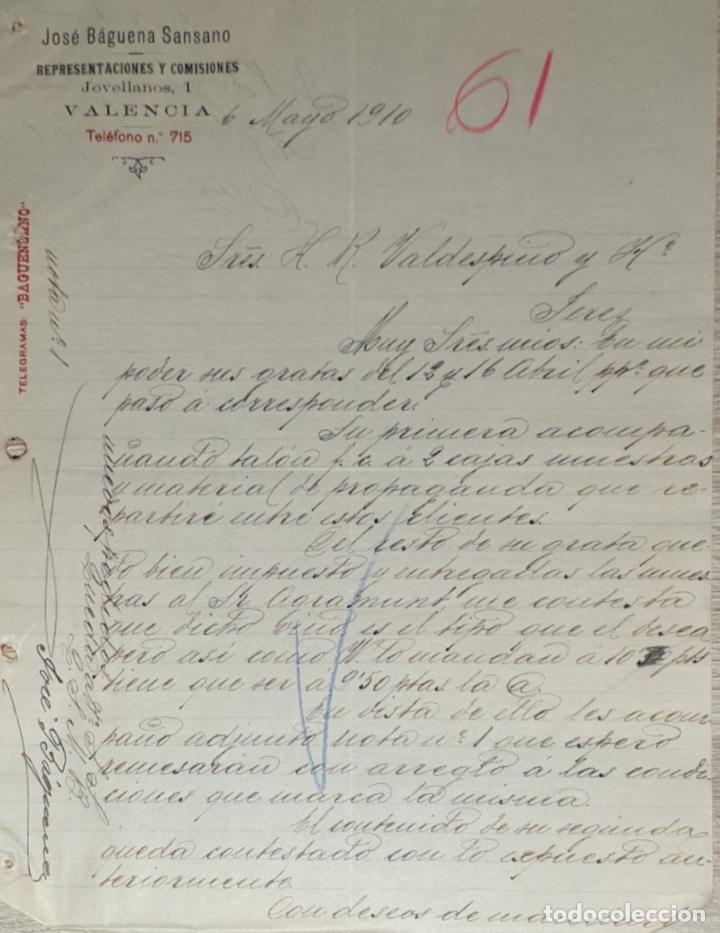 José Báguena Sansano
REPRESENTACIONES Y COMISIONES
Jovellanos, 1
VALENCIA
Teléfono n.° 715
6 Mayo 1910
61
TELEGRAMAS: "BAGUENSANO"
Sres. H. R. Valdespino y Hº
Jerez
Muy Sres. mios: En mi
poder sus gratas del 12 y 16 Abril ppº que
paso a corresponder.
Su primera acompa-
ñando talón f.c. á 2 cajas muestras
y material de propaganda que re-
partiré entre estos clientes.
Del resto de su grata que-
do bien impuesto y entregadas las mues-
tras al Sr Agramunt, me contesta
que dicho vino es el tipo que el desea
pero así como V. lo mandan á 10 pts
tiene que ser a 9'50 ptas la @.
En vista de ello les acom-
paño adjunto nota nº 1 que espero
remesarán con arreglo á las condi-
ciones que marca la misma.
El contenido de su segunda
queda contestado con lo expuesto an-
teriormente.
Con deseos de
nuevos pedidos
Quedo
S. S.
José Báguena
nota nº 1
todocoleccion.net